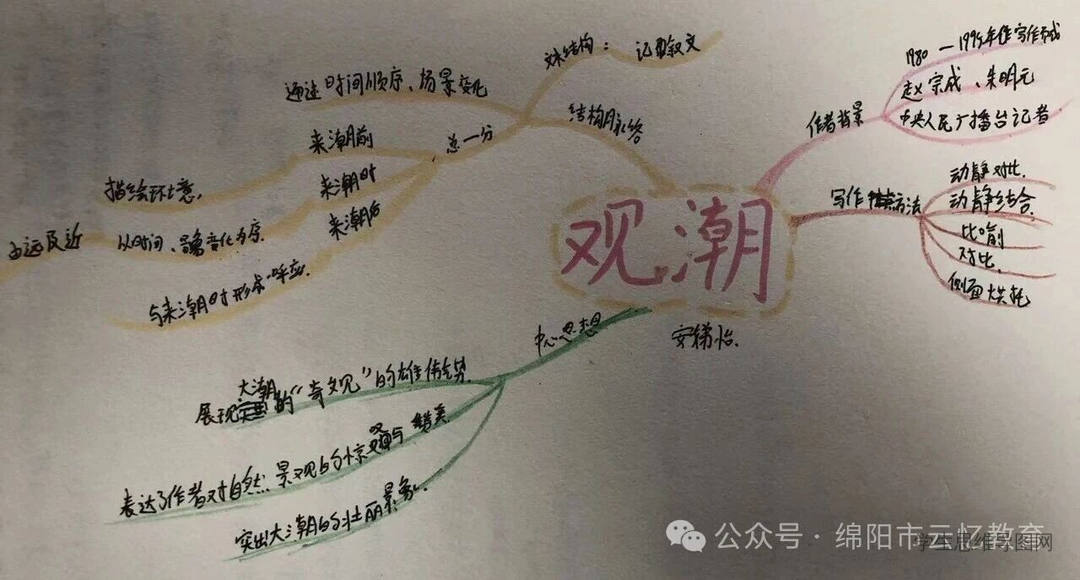 观潮
安梯怡.
作者背景
1980-1995年作写作而成
赵宗成、朱明元
中央人民广播台记者
写作方法
动静对比.
动静结合.
比喻
对比.
侧面烘托
结构脉络
文体结构:
记叙文
总一分
通过时间顺序、场景变化
来潮前
描绘环境,
来潮时
以时间、变化为序.
由远及近
来潮后
与来潮时形成呼应.
中心思想
展现大潮的“奇观”的雄伟气势.
表达了作者对自然景观的惊叹与赞美
突出大潮的壮丽景象.
公众号·绵阳市云忆教育
学生思维导图网